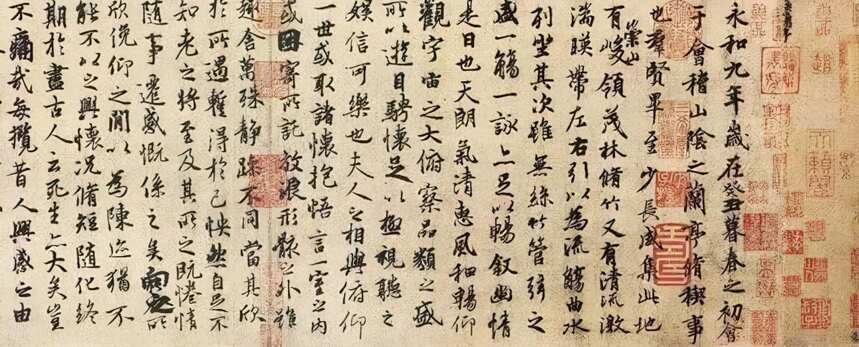 永和九年歲在癸丑暮春之初會
于會稽山陰之蘭亭脩稧事
也羣賢畢至少長咸集此地
有崇山峻領茂林脩竹又有清流激
湍暎帶左右引以為流觴曲水
列坐其次雖無絲竹管弦之
盛一觴一詠亦足以暢敘幽情
是日也天朗氣清惠風和暢仰
觀宇宙之大俯察品類之盛
所以遊目騁懷足以極視聽之
娛信可樂也夫人之相與俯仰
一世或取諸懷抱悟言一室之內
或因寄所託放浪形骸之外雖
趣舍萬殊靜躁不同當其欣
於所遇蹔得於己怏然自足不
知老之將至及其所之既惓情
隨事遷感慨係之矣向之所
欣俛仰之閒以為陳迹猶不
能不以之興懷況脩短隨化終
期於盡古人云死生亦大矣豈
不痛哉每攬昔人興感之由